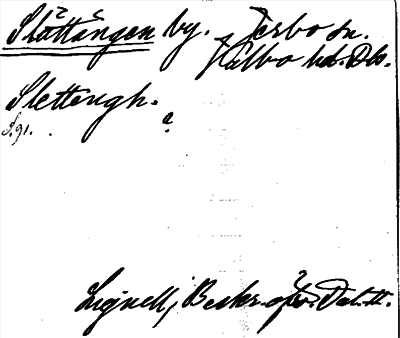 Slättängen by. Ferbo sn.
Valbo hd. Dls.
Slettengh.
S. 91.
a
Lignell, Beskr. öfv. Dal. II.